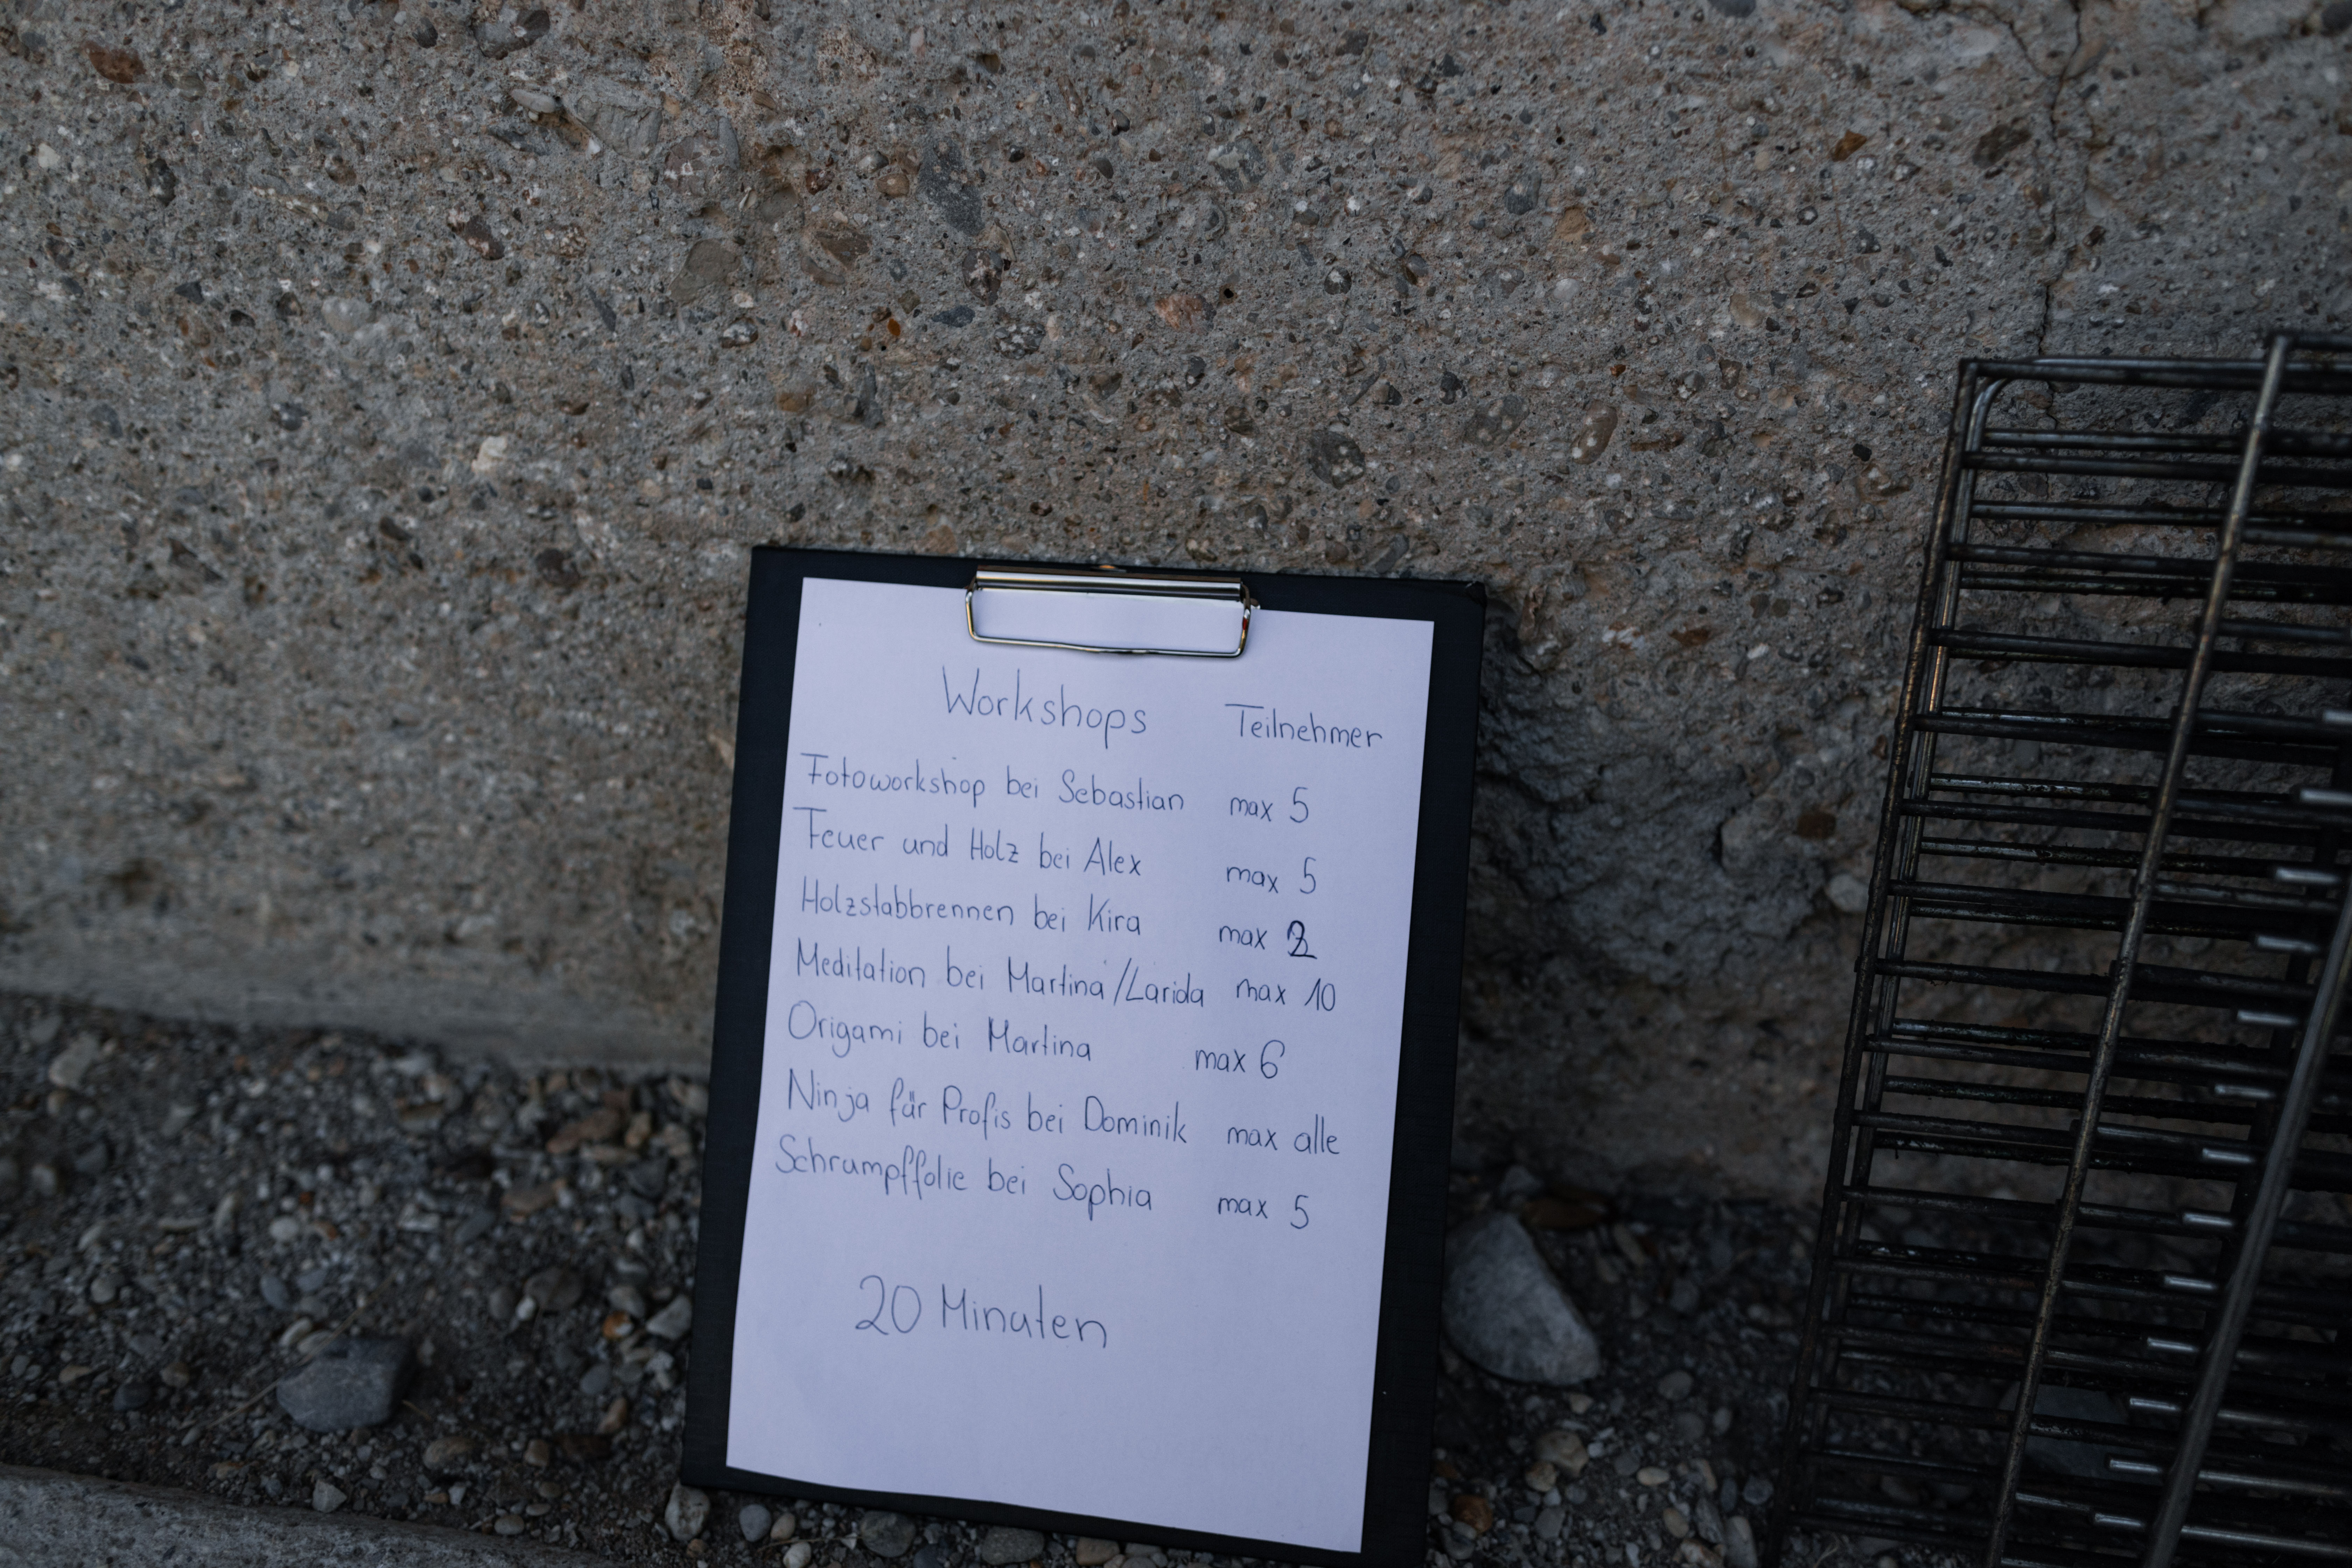 Workshops Teilnehmer
Fotoworkshop bei Sebastian max 5
Feuer und Holz bei Alex max 5
Holzstabbrennen bei Kira max 2
Meditation bei Martina/Larida max 10
Origami bei Martina max 6
Ninja für Profis bei Dominik max alle
Schrumpffolie bei Sophia max 5
20 Minuten